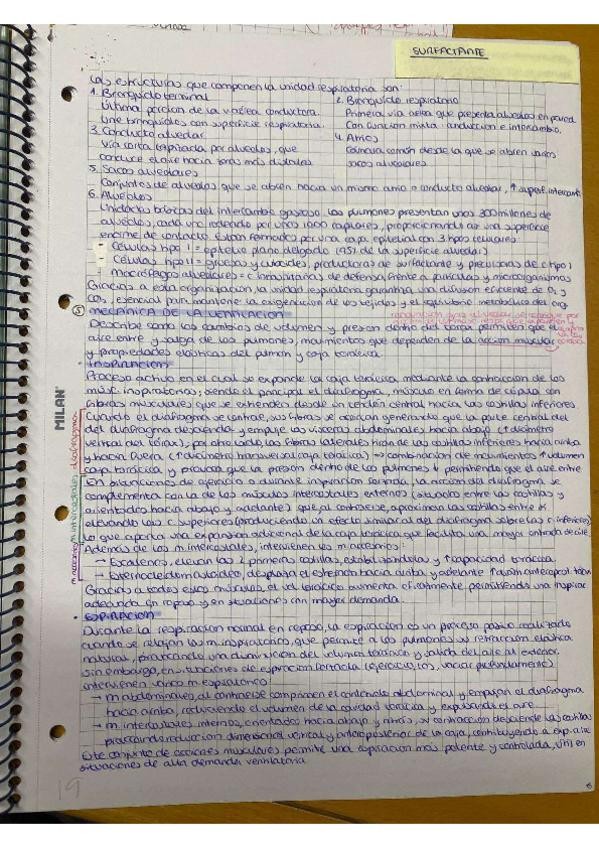 SURFACTANTE
Las estructuras que componen la unidad respiratoria son:
1. Bronquiolo terminal
Última porción de la vía aérea conductora.
Une bronquiolos con superficie respiratoria.
2. Bronquiolo respiratorio
Primera vía aérea que presenta alveolos en pared
Con función mixta: conducción e intercambio.
3. Conducto alveolar
Vía corta tapizada por alveolos, que
conduce el aire hacia zonas más distales
4. Atrios
Estancia común desde la que se abren varios
sacos alveolares
5. Sacos alveolares
Conjuntos de alveolos que se abren hacia un mismo atrio o conducto alveolar, ↑ superf. intercamb.
6. Alveolos
Unidades básicas del intercambio gaseoso. Los pulmones presentan unos 300 millones de
alveolos, cada uno rodeado por unos 1000 capilares, proporcionando así una superficie
enorme de contacto. Están formados por una capa epitelial con 3 tipos celulares:
- Células tipo I = epitelio plano delgado (95% de la superficie alveolar)
- Células tipo II = gruesas y cuboides, productoras de surfactante y precursoras de c. tipo I
- Macrófagos alveolares = c. inmunitarias de defensa frente a partículas y microorganismos
Gracias a esta organización, la unidad respiratoria garantiza una difusión eficiente de O₂ y
CO₂, esencial para mantener la oxigenación de los tejidos y el equilibrio metabólico del org.
⑤ MECÁNICA DE LA VENTILACIÓN
Describe como los cambios de volumen y presión dentro del tórax permiten que el
aire entre y salga de los pulmones, movimientos que dependen de la acción muscular
y propiedades elásticas del pulmón y caja torácica
· INSPIRACIÓN
Proceso activo en el cual se expande la caja torácica mediante la contracción de los
músc. inspiratorios, siendo el principal el diafragma, músculo en forma de cúpula con
fibras musculares que se extienden desde un tendón central hacia las costillas inferiores
Cuando el diafragma se contrae, sus fibras se acortan generando que la parte central del
del diafragma descienda y empuje las vísceras abdominales hacia abajo (↑ diámetro
vertical del tórax), por otro lado, las fibras laterales tiran de las costillas inferiores hacia arriba
y hacia fuera (↑ diámetro transversal caja torácica) → combinación de movimientos ↑ volumen
caja torácica y provoca que la presión dentro de los pulmones ↓ permitiendo que el aire entre
En situaciones de ejercicio o durante inspiración forzada, la acción del diafragma se
complementa con la de los músculos intercostales externos (situados entre las costillas y
orientados hacia abajo y adelante) que al contraerse, aproximan las costillas entre sí
elevando las c. superiores (produciendo un efecto similar al del diafragma sobre las c. inferiores)
lo que aporta una expansión adicional de la caja torácica que facilita una mayor entrada de aire.
Además de los m. intercostales, intervienen los m. accesorios:
→ Escalenos, elevan las 2 primeras costillas, estabilizándolas y ↑ capacidad torácica.
→ Esternocleidomastoideo, desplaza el esternón hacia arriba y adelante ↑ diám. anteropost. tórax
Gracias a todos estos músculos, el vol. torácico aumenta eficazmente, permitiendo una inspirac.
adecuada en reposo y en situaciones con mayor demanda.
· ESPIRACIÓN
Durante la respiración normal en reposo, la espiración es un proceso pasivo realizado
cuando se relajan los m. inspiratorios, que permite a los pulmones su retracción elástica
natural, provocando una disminución del volumen torácico y salida del aire al exterior.
Sin embargo, en situaciones de espiración forzada (ejercicio, tos, vaciar profundamente)
intervienen varios m. espiratorios:
→ m. abdominales, al contraerse comprimen el contenido abdominal y empujan el diafragma
hacia arriba, reduciendo el volumen de la cavidad torácica y expulsando el aire.
→ m. intercostales internos, orientados hacia abajo y atrás, su contracción desciende las costillas
provocando reducción dimensional vertical y anteroposterior de la caja, contribuyendo a exp. aire
Este conjunto de acciones musculares permite una espiración más potente y controlada, útil en
situaciones de alta demanda ventilatoria
diafragma
m. intercostales
m. accesorios
MILAN
19